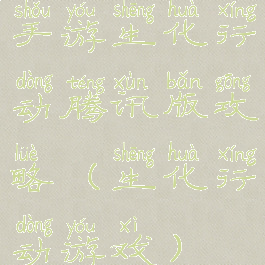 shǒu yóu shēng huà xíng
手游生化行
dòng téng xùn bǎn gōng
动腾讯版攻
lüè shēng huà xíng
略（生化行
dòng yóu xì
动游戏）